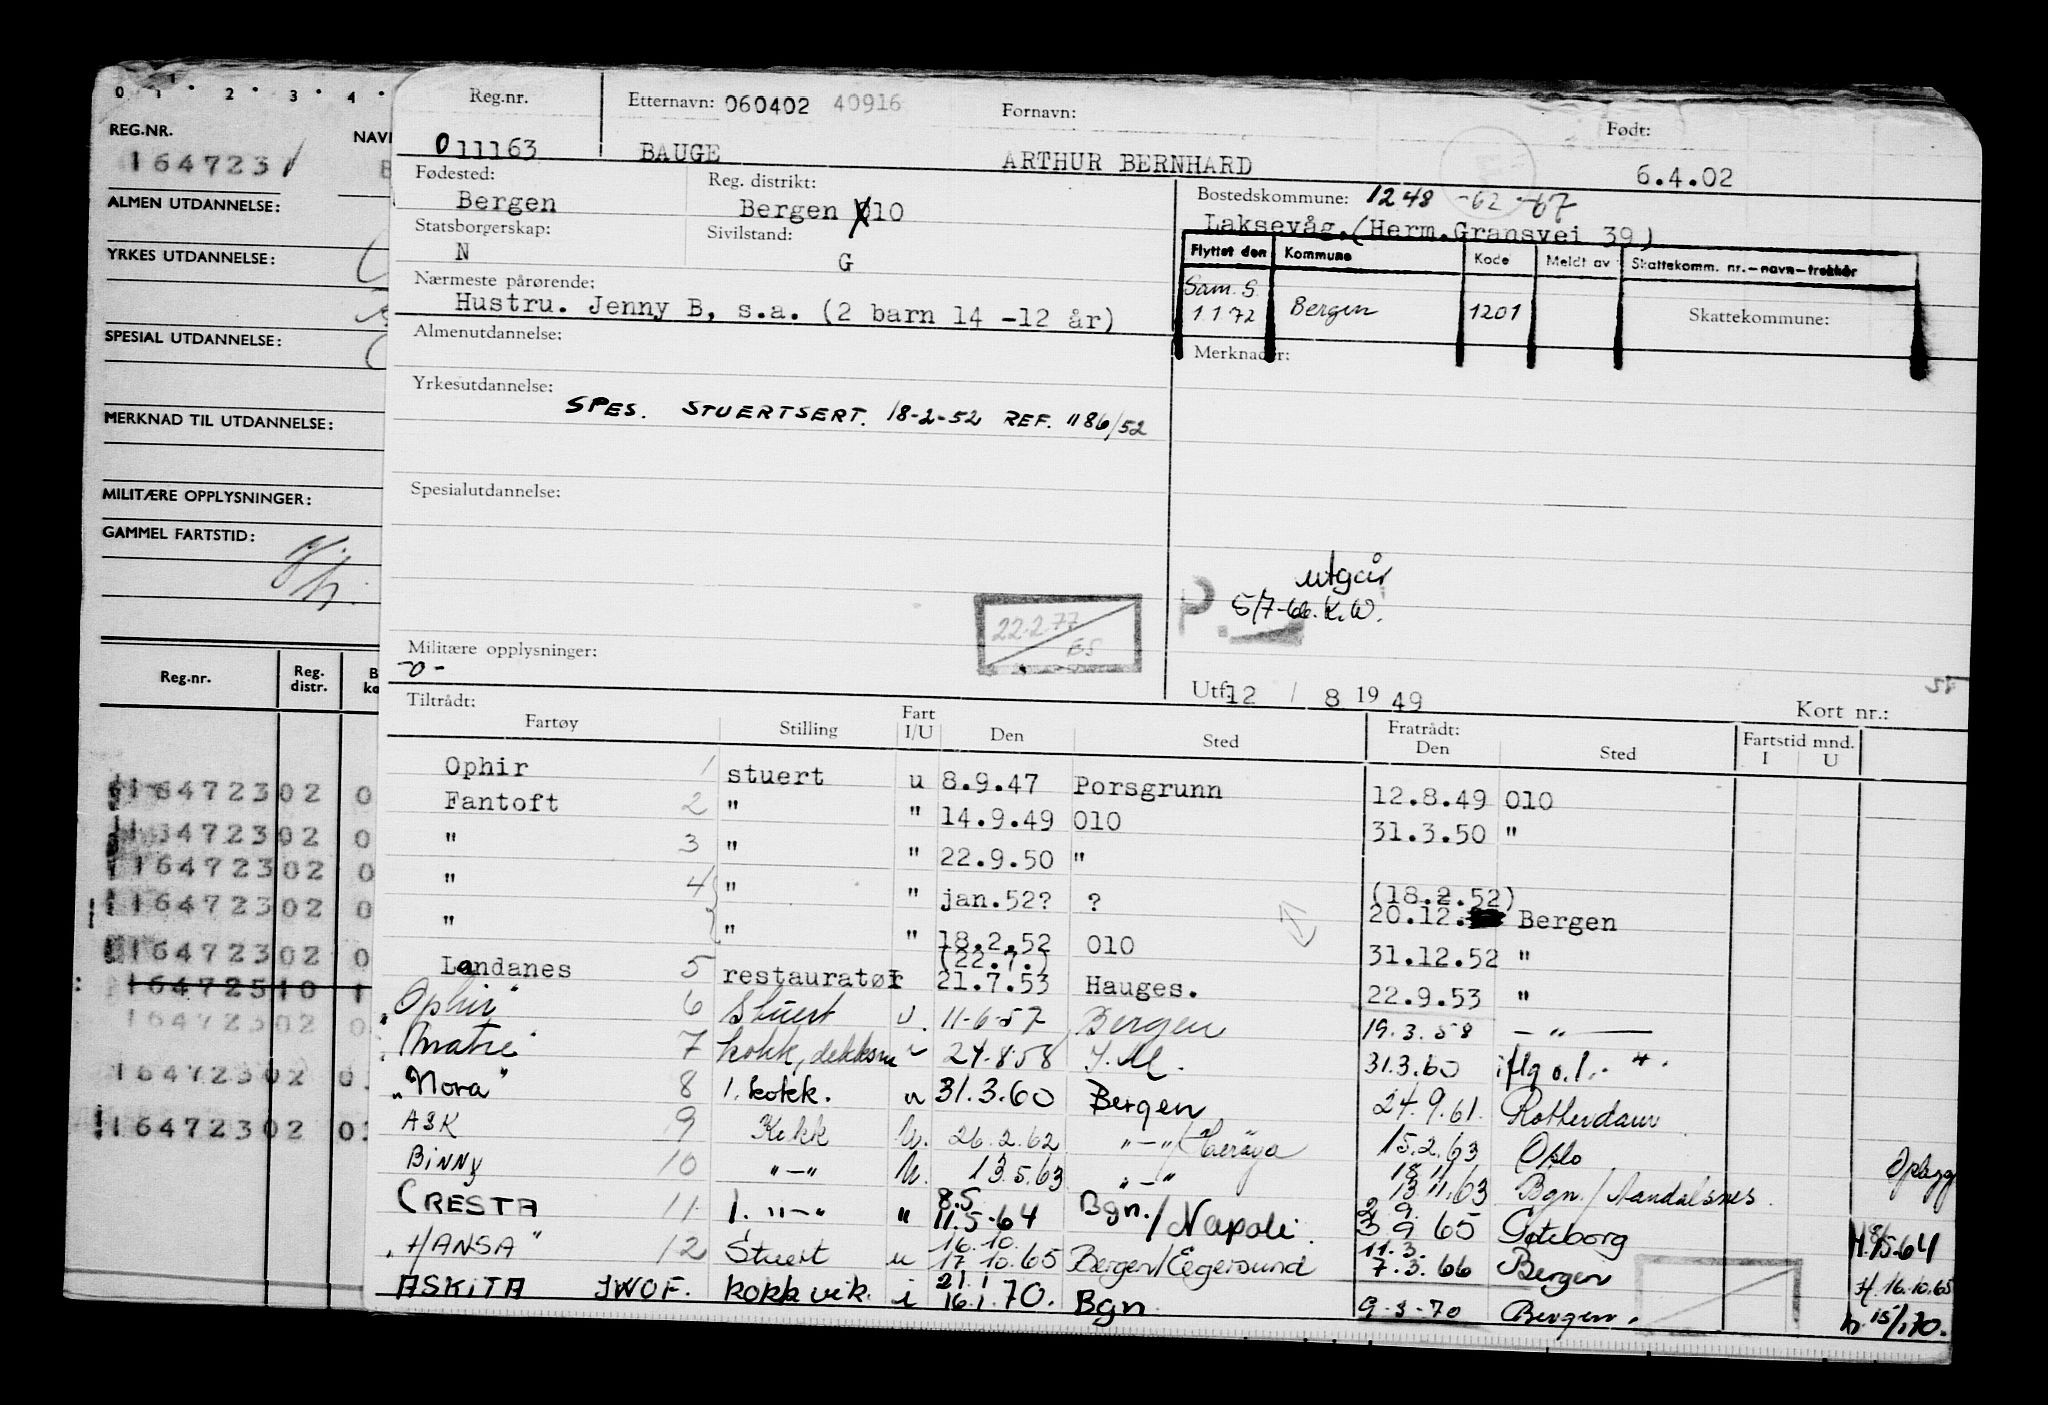 0 1 2 3 4
REG.NR.
1647231
ALMEN UTDANNELSE:
YRKES UTDANNELSE:
SPESIAL UTDANNELSE:
MERKNAD TIL UTDANNELSE:
MILITÆRE OPPLYSNINGER:
GAMMEL FARTSTID:
Reg.nr. Reg. distr.
16472302 0
16472302 0
16472302 0
16472302 0
16472302 0
16472302 0
16472302 0
16472302 0
Reg.nr. Etternavn: 060402 40916 Fornavn: Født:
011163 BAUGE ARTHUR BERNHARD 6.4.02
Fødested: Reg. distrikt: Bostedskommune: 1248 -62 -67
Bergen Bergen 010 Laksevåg.(Herm.Gransvei 39)
Statsborgerskap: Sivilstand:
N G
Flyttet den Kommune Kode Meldt av Skattekomm. nr.-navn-trekkår
Sam. S. 1 1 72 Bergen 1201 Skattekommune:
Nærmeste pårørende:
Hustru. Jenny B, s.a. (2 barn 14 -12 år)
Almenutdannelse: Merknader:
Yrkesutdannelse:
SPES. STUERTSERT. 18-2-52 REF. 1186/52
Spesialutdannelse:
utgår
5/7-66. K.W.
22.2.77
ES
Militære opplysninger:
-0-
Utf. 12 / 8 19 49 Kort nr.:
Tiltrådt: Fratrådt:
Fartøy Stilling Fart I/U Den Sted Den Sted Fartstid mnd. I U
Ophir 1 stuert u 8.9.47 Porsgrunn 12.8.49 010
Fantoft 2 " " 14.9.49 010 31.3.50 "
" 3 " " 22.9.50 "
" 4 " " jan.52? ? (18.2.52)
20.12. Bergen
" " " 18.2.52 010 31.12.52 "
(22.7.)
Landanes 5 restauratør 21.7.53 Hauges. 22.9.53 "
"Ophir" 6 Stuert u. 11-6-57 Bergen 19.3.58 - " -
7 kokk, 24-8-58 31.3.60
"Nora" 8 1. kokk. u 31.3.60 Bergen 24.9.61. Rotterdam
ASK 9 Kokk u. 26.2.62 "-"/Herøya 15.2.63 Oslo
Binny 10 "-" u. 13.5.63 "-" 18.11.
13.11.63 Bgn./Aandalsnes. Opplagg
CRESTA 11 1. "-" " 8.5.
11.5-64 Bgn./Napoli. 2. 9.
3 9 65 Gøteborg H.8/5-64
"HANSA" 12 Stuert u 16.10.
17.10.65 Bergen/Egersund 11.3.
7.3.66 Bergen H.16.10.65
ASKITA JWOF. kokk vik. i 21.1
16.1.70. Bgn. 9-3-70 Bergen. h.15/1-70.